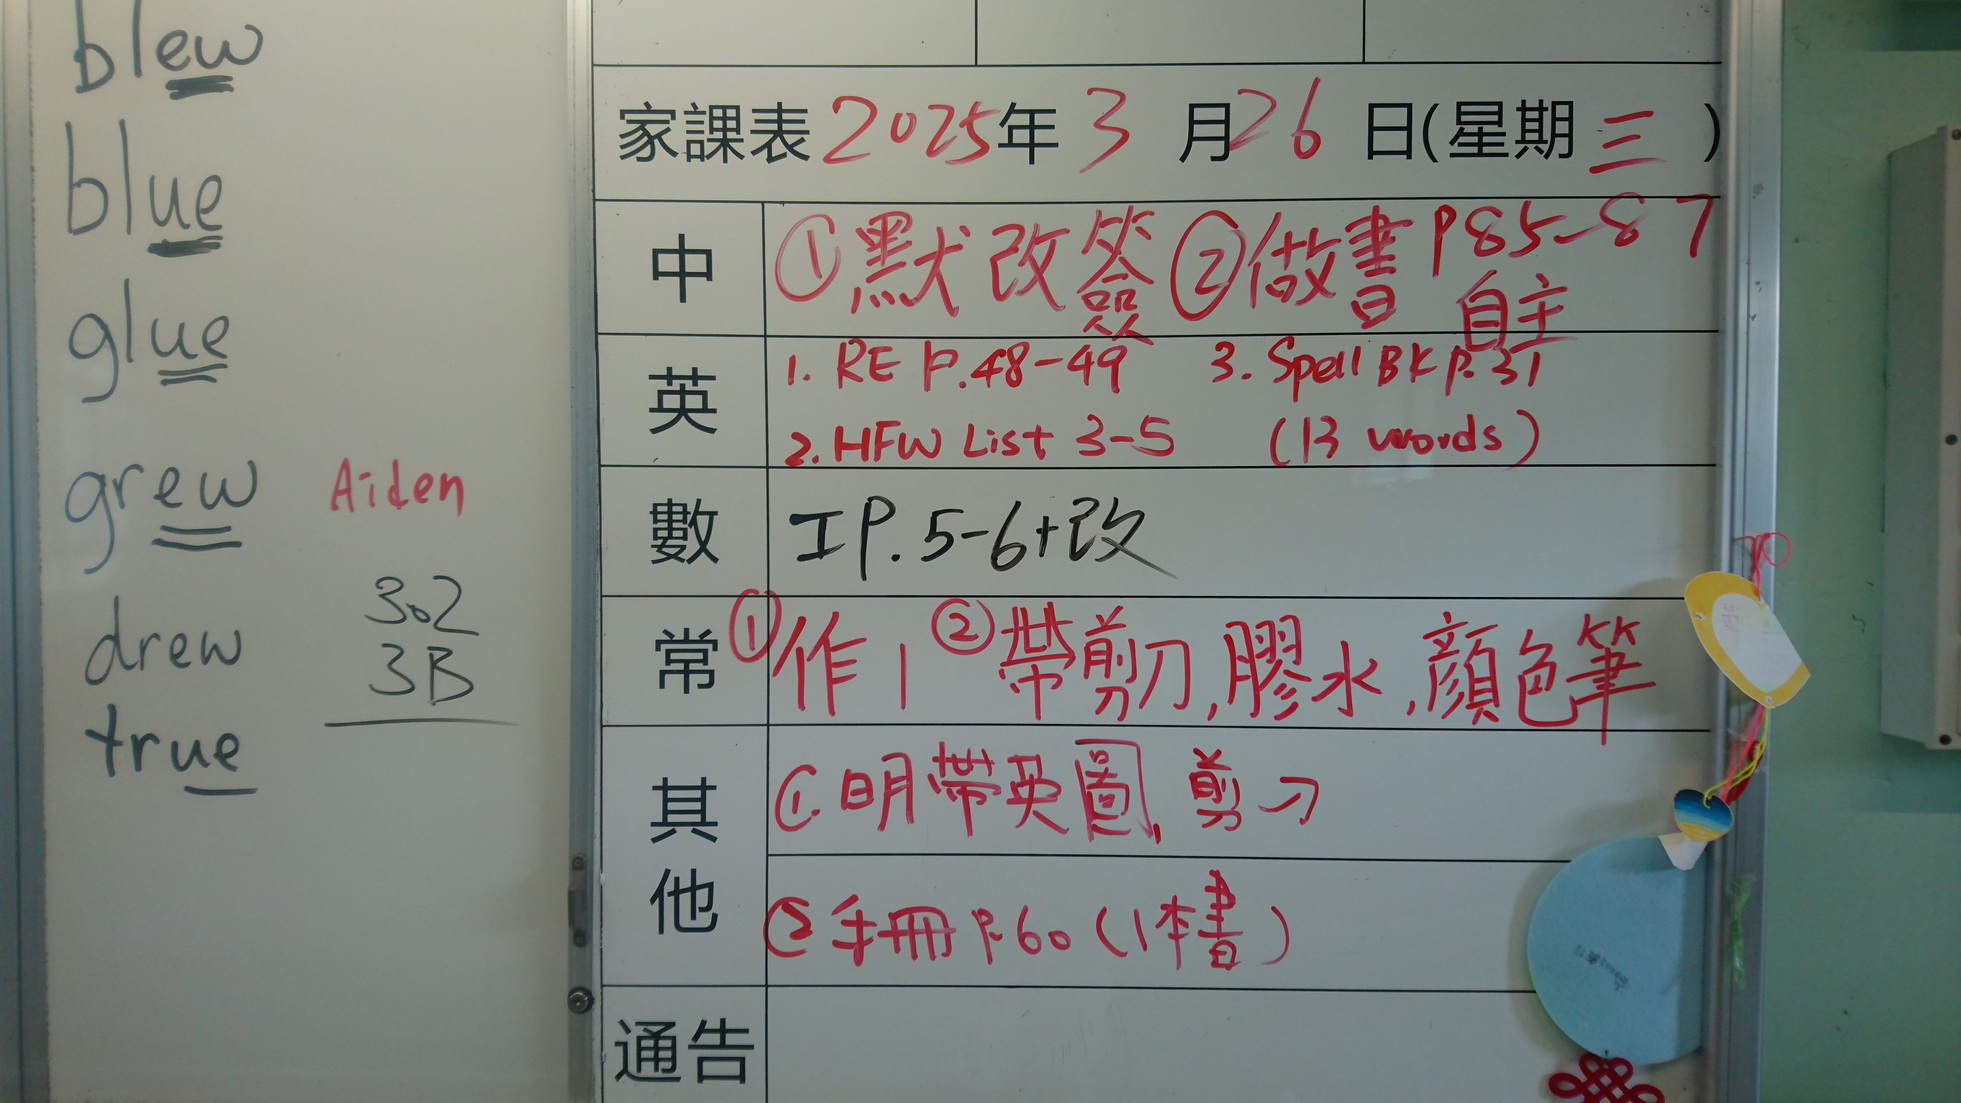 blew
blue
glue
grew
Aiden
302
3B
drew
true
家課表2025年3月26日(星期三)
中
①默改簽②做書P85-87
自主
英
1. RE P.48-49 3. Spell BK P.31
2. HFW List 3-5 (13 words)
數
工P.5-6+改
常
①作1 ②帶剪刀,膠水,顏色筆
其他
①.明帶英圖,剪刀
②手冊P.60(1本書)
通告